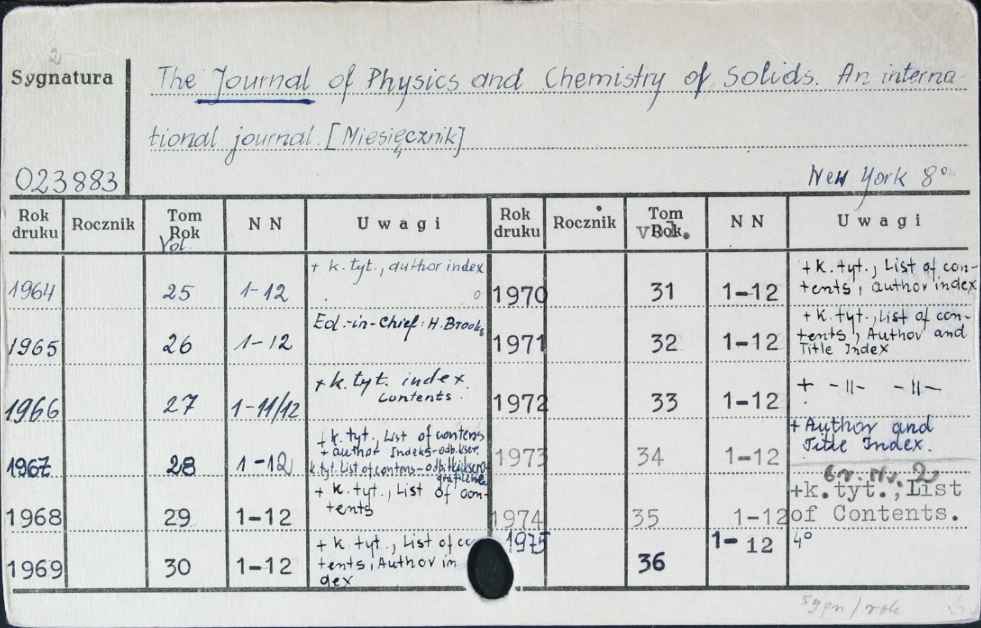 2
Sygnatura
The Journal of Physics and Chemistry of Solids. An interna-
tional journal. [Miesięcznik]
023883
New York 8°
Rok druku Rocznik Tom Rok Vol. NN Uwagi Rok druku Rocznik Tom Rok. Vol. NN Uwagi
1964 25 1-12 + k. tyt., author index
1970 31 1-12 + k. tyt., List of con-
tents, author index
1965 26 1-12 Ed.-in-Chief: H. Brooks
1971 32 1-12 + k. tyt., List of con-
tents, Author and
Title Index
1966 27 1-11/12 + k. tyt. index.
contents.
1972 33 1-12 + -||- -||-
1967 28 1-12 + k. tyt., List of contens
+ author Indeks-odb. kser.
k. tyt. List of contens-
1973 34 1-12 + Author and
Title Index.
1968 29 1-12 + k. tyt., List of con-
tents
1974 35 1-12 +k. tyt., List
of Contents.
1969 30 1-12 + k. tyt., List of co
tents, Author in
dex
1975 36 1-12 4°